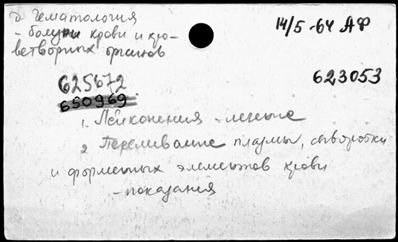 Гематология 14/5-64 АФ
- болезни крови и кро-
ветворных органов
625672 623053
650969
1. Лейкопения - лечение
2 Переливание плазмы, сыворотки
и форменных элементов крови
- показания